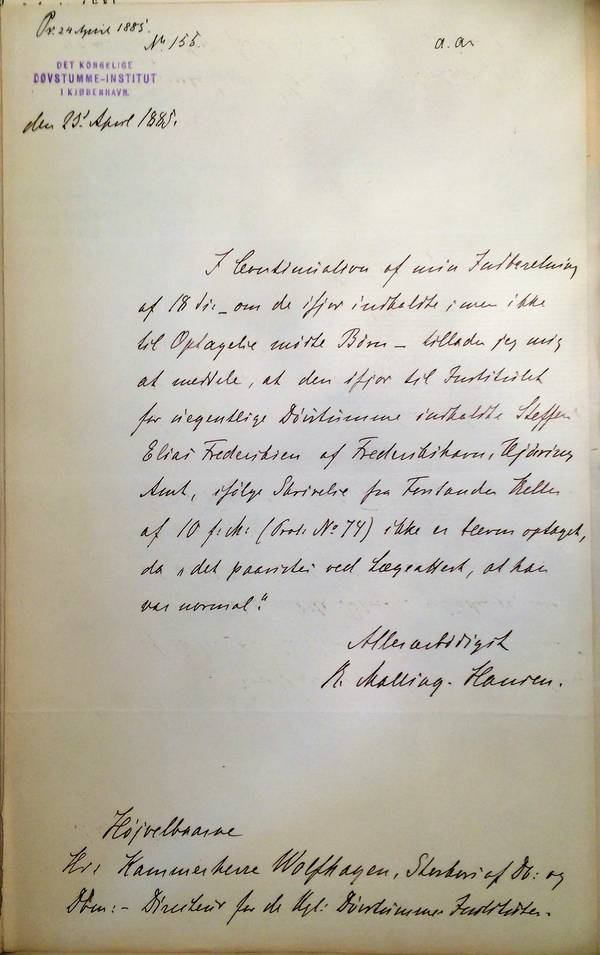 Pr. 24 April 1885.
No 155.
a. a.
DET KONGELIGE
DØVSTUMME-INSTITUT
I KJØBENHAVN.
den 23' April 1885.
I Continuation af min Indberetning
af 18 ds. – om de ifjor indkaldte, men ikke
til Optagelse mødte Børn – tillader jeg mig
at meddele, at den ifjor til Institutet
for uegentlige Døvstumme indkaldte Steffen
Elias Frederiksen af Frederikshavn, Hjørring
Amt, ifølge Skrivelse fra Forstander Keller
af 10 f: M: (Prot: No 74) ikke er bleven optaget,
da "det paavistes ved Lægeattest, at han
var normal".
Allerærbødigst
R. Malling-Hansen.
Højvelbaarne
Hr: Kammerherre Wolfhagen, af Db: og
Dbm: – Directeur for de Kgl: Døvstumme-Instituter.